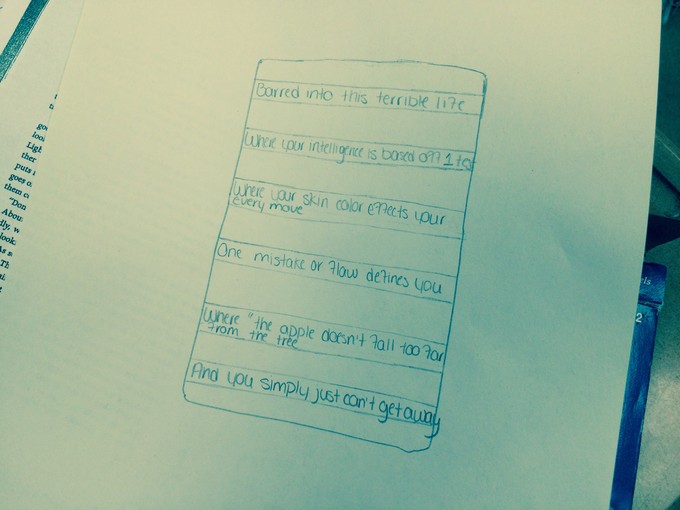 Barred into this terrible life
Where your intelligence is based off 1 to
Where your skin color effects your
every move
One mistake or flaw defines you
Where "the apple doesn't fall too far
from the tree
And you simply just can't get away
Ligh
ther
puts
goes
them
"Don
Abou
dly, w
look
2